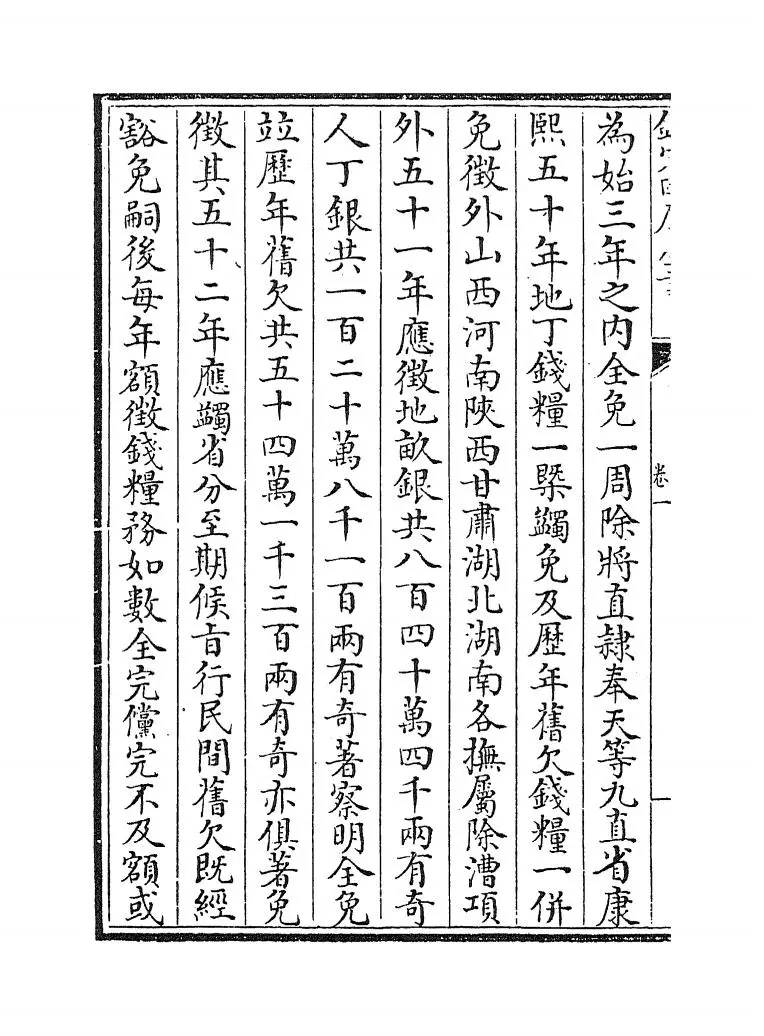 卷一
為始三年之内全免一周除將直隸奉天等九直省康
熙五十年地丁錢糧一槩蠲免及歴年舊欠錢糧一併
免徵外山西河南陝西甘肅湖北湖南各撫屬除漕項
外五十一年應徵地畝銀共八百四十萬四千兩有奇
人丁銀共一百二十萬八千一百兩有奇著察明全免
竝歷年舊欠共五十四萬一千三百兩有奇亦俱著免
徵其五十二年應蠲省分至期候旨行民間舊欠既經
豁免嗣後每年額徵錢糧務如數全完儻完不及額或